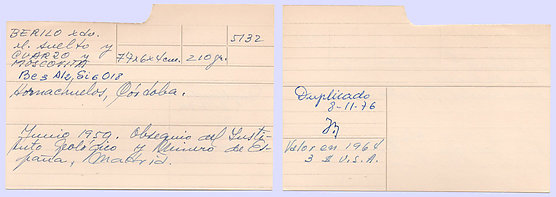 BERILO xdo.
xl. suelto y
CUARZO y
MOSCOVITA
7'4x6x4cm.
210gr.
5132
Be3 Al2, Si6 O18
Hornachuelos, Córdoba.
Junio 1959. Obsequio del Insti-
tuto Geológico y Minero de Es-
paña, Madrid.
Duplicado
3-11-76
Valor en 1964
3 $ U.S.A.